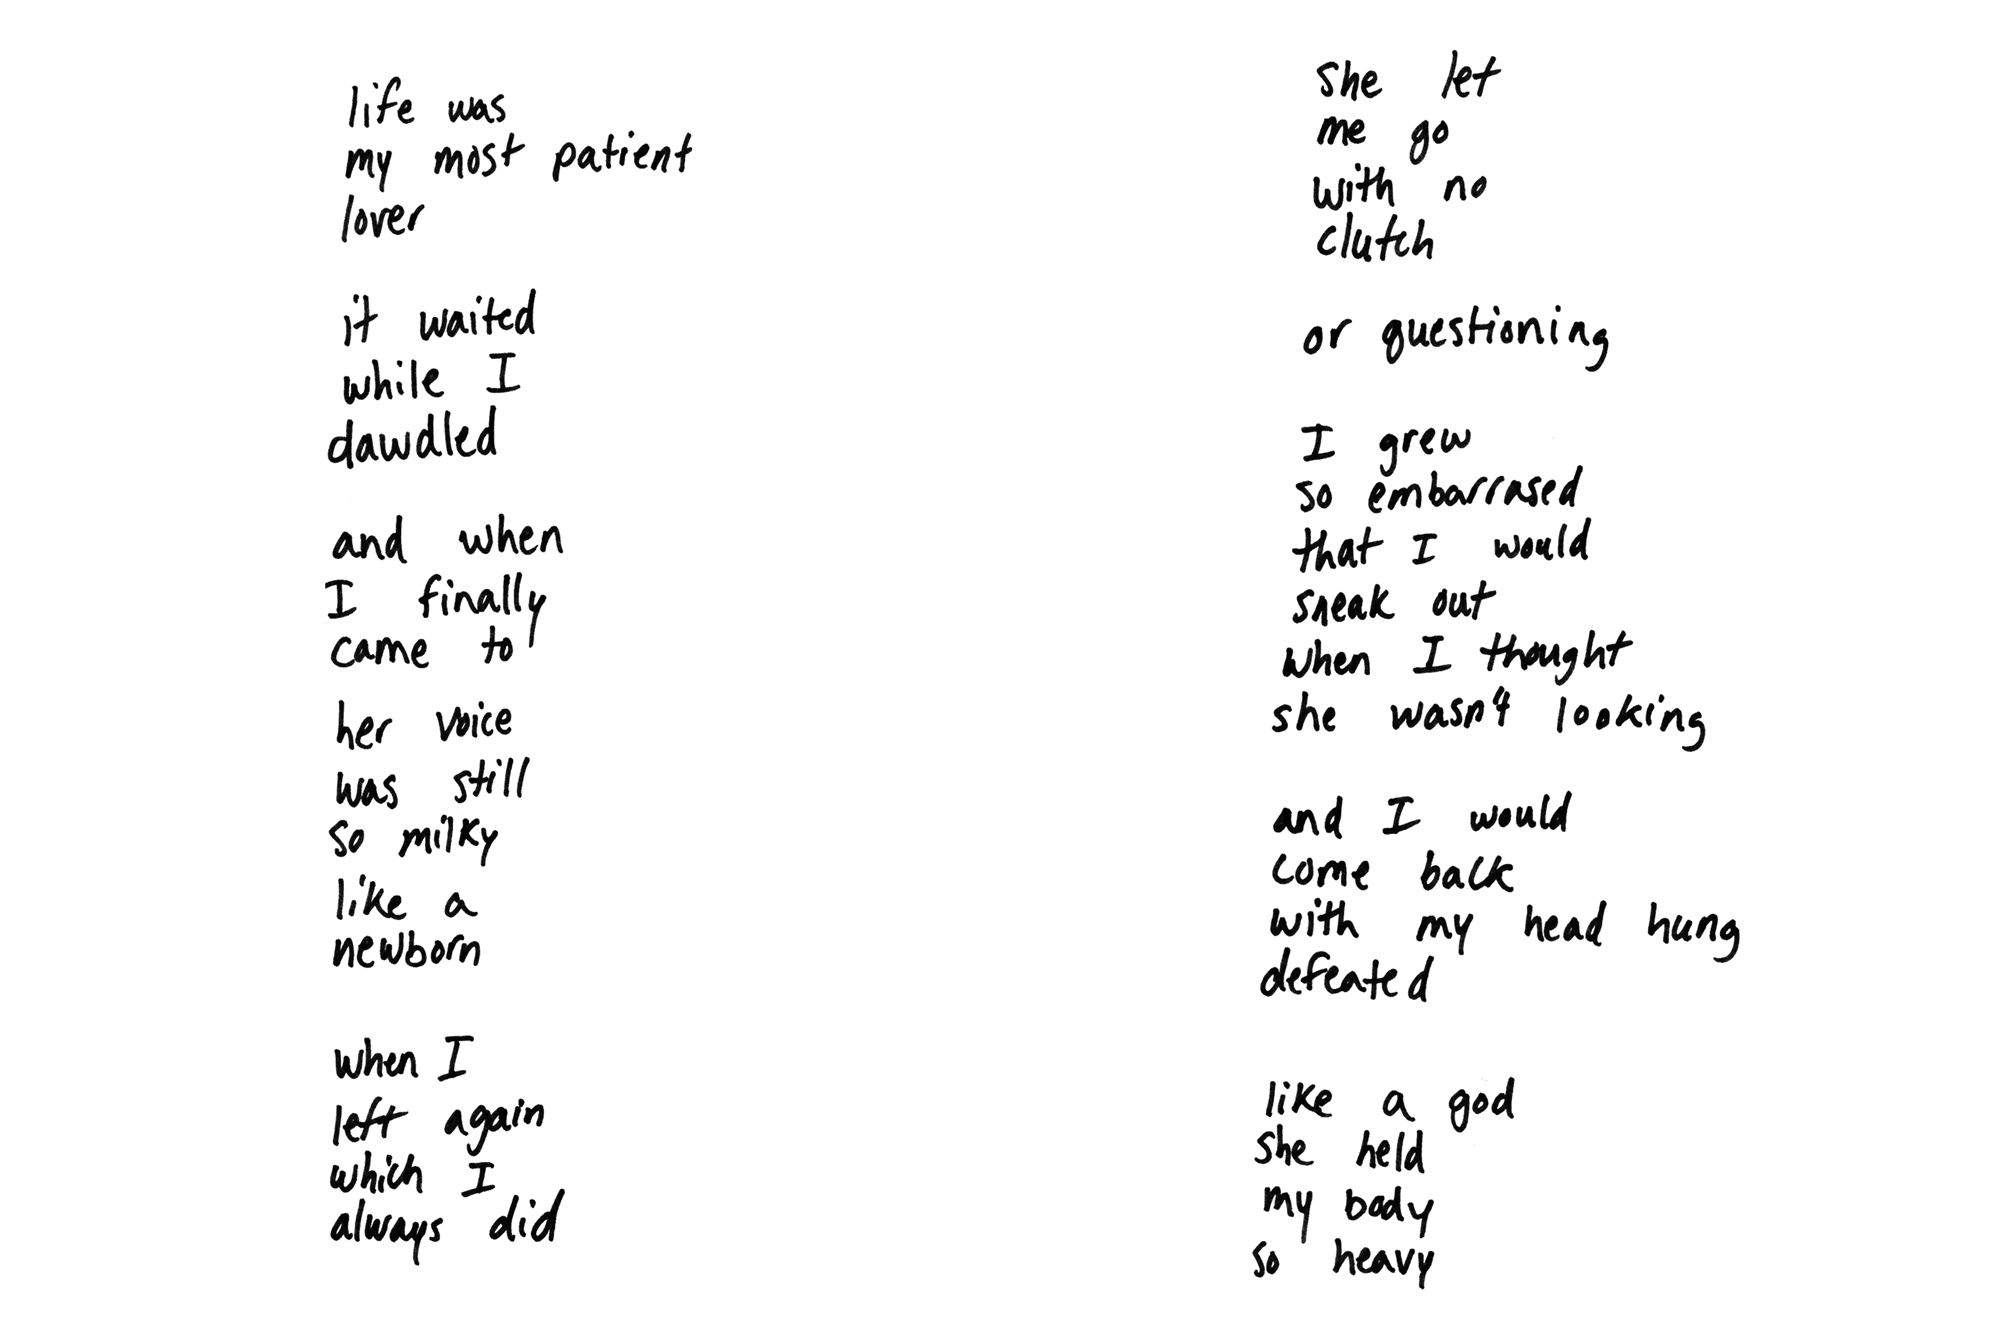 life was
my most patient
lover
it waited
while I
dawdled
and when
I finally
came to
her voice
was still
so milky
like a
newborn
when I
left again
which I
always did
she let
me go
with no
clutch
or questioning
I grew
so embarrased
that I would
sneak out
when I thought
she wasn't looking
and I would
come back
with my head hung
defeated
like a god
she held
my body
so heavy